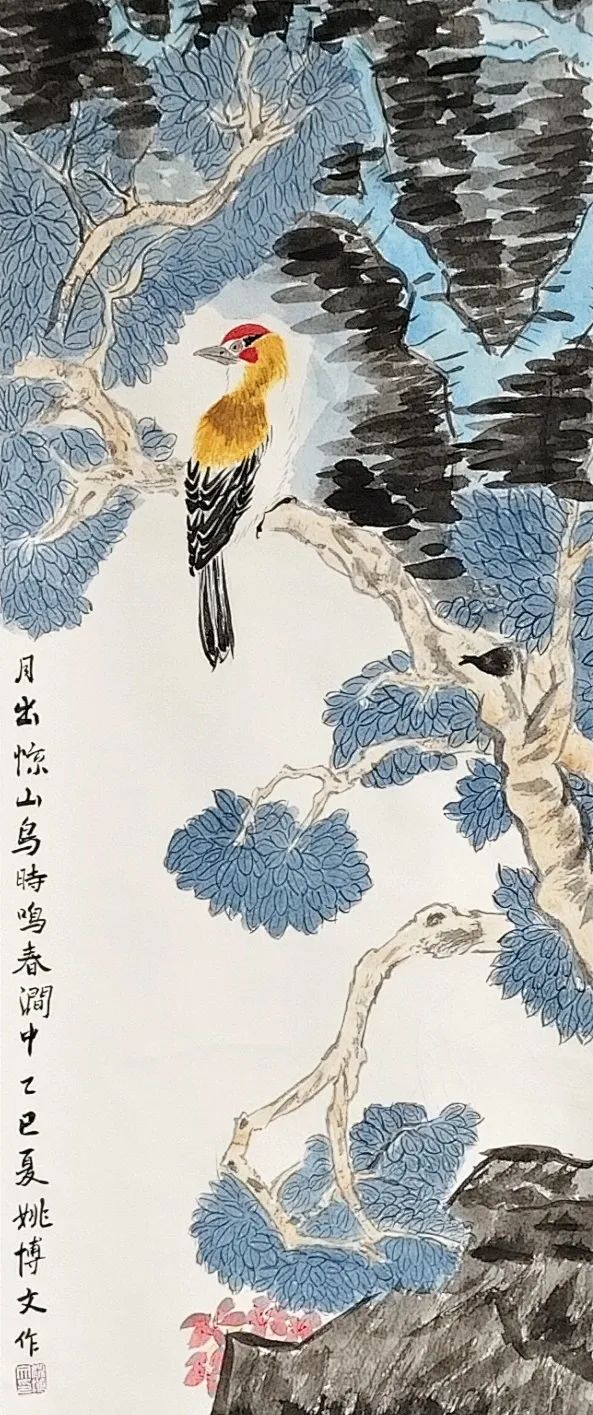 月出惊山鸟時鸣春澗中乙巳夏姚博文作